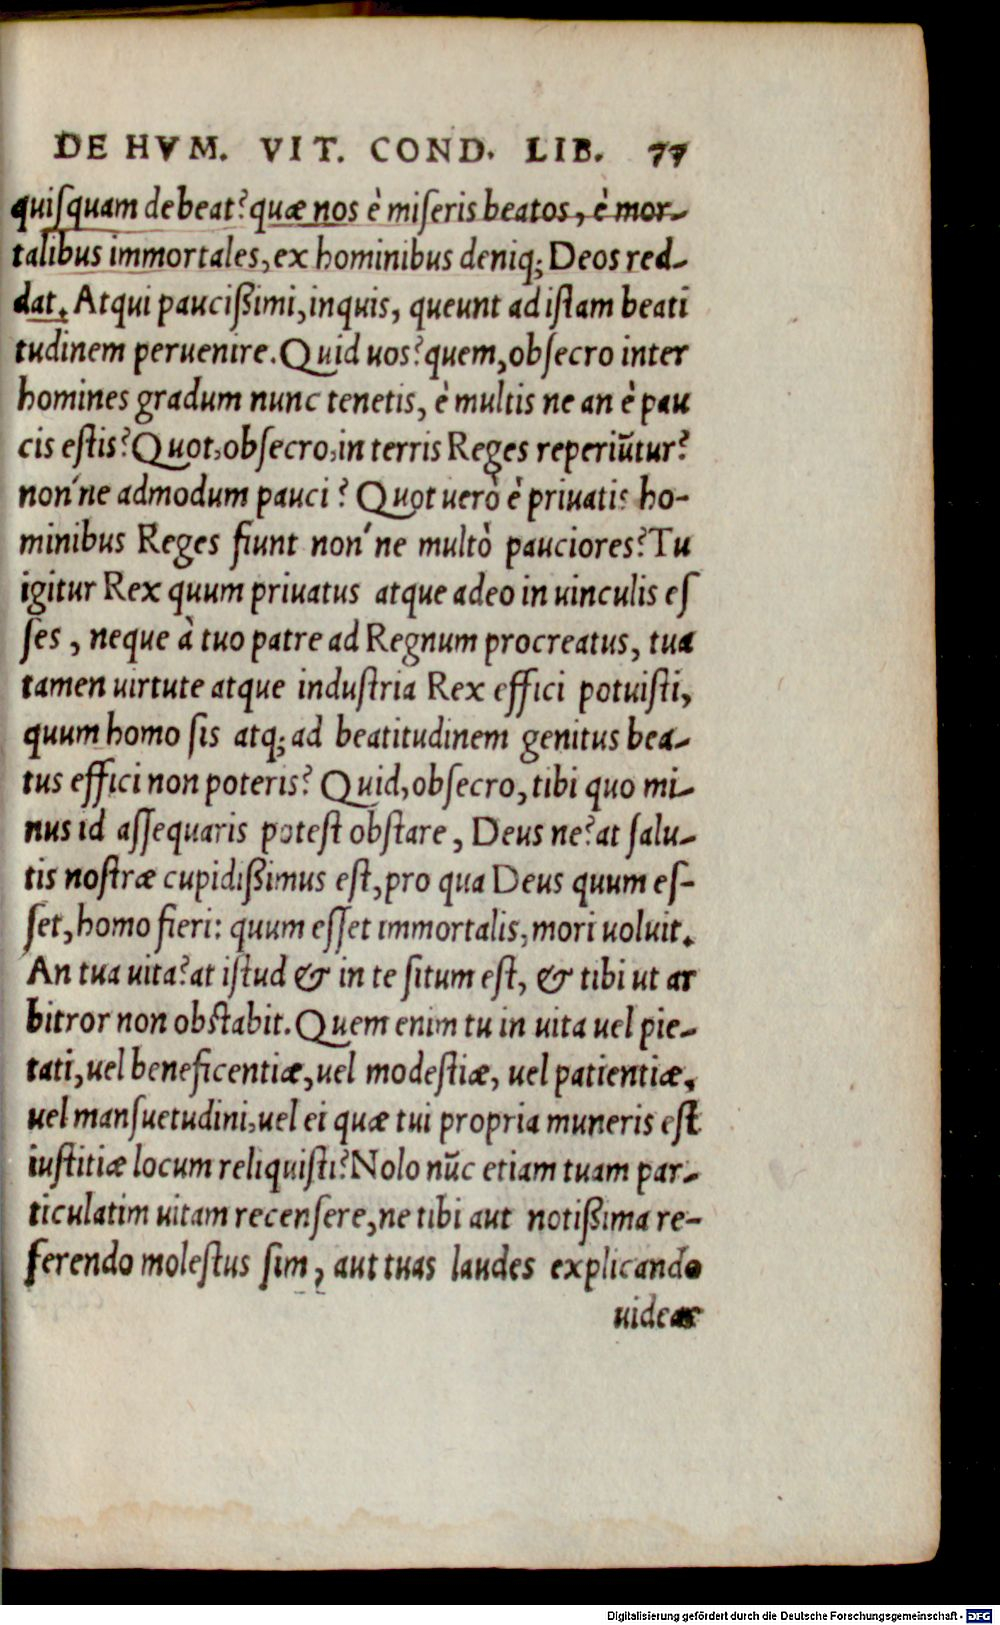 DE HVM. VIT. COND. LIB. 77
quiſquam debeat? quæ nos è miſeris beatos, è mor-
talibus immortales, ex hominibus deniq; Deos red-
dat. Atqui pauciſsimi, inquis, queunt ad iſtam beati
tudinem peruenire. Quid uos? quem, obſecro inter
homines gradum nunc tenetis, è multis ne an è pau
cis eſtis? Quot, obſecro, in terris Reges reperiūtur?
non'ne admodum pauci? Quot uerò è priuatis ho-
minibus Reges fiunt non'ne multò pauciores? Tu
igitur Rex quum priuatus atque adeo in uinculis eſ
ſes, neque à tuo patre ad Regnum procreatus, tua
tamen uirtute atque induſtria Rex effici potuiſti,
quum homo ſis atq; ad beatitudinem genitus bea-
tus effici non poteris? Quid, obſecro, tibi quo mi-
nus id aſſequaris poteſt obſtare, Deus ne? at ſalu-
tis noſtræ cupidiſsimus eſt, pro qua Deus quum eſ-
ſet, homo fieri: quum eſſet immortalis, mori uoluit.
An tua uita? at iſtud & in te ſitum eſt, & tibi ut ar
bitror non obſtabit. Quem enim tu in uita uel pie-
tati, uel beneficentiæ, uel modeſtiæ, uel patientiæ,
uel manſuetudini, uel ei quæ tui propria muneris eſt
iuſtitiæ locum reliquiſti? Nolo nūc etiam tuam par-
ticulatim uitam recenſere, ne tibi aut notiſsima re-
ferendo moleſtus ſim, aut tuas laudes explicando
uidear
Digitalisierung gefördert durch die Deutsche Forschungsgemeinschaft - DFG